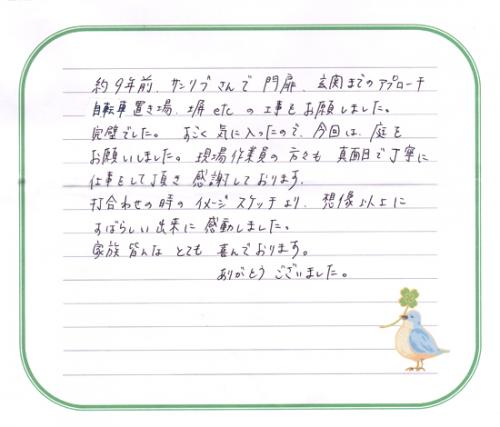 約9年前、サンリブさんで 門扉、玄関までのアプローチ
自転車置き場、塀 etc の工事をお願しました。
完璧でした。 すごく気に入ったので、今回は、庭を
お願いしました。現場作業員の方々も 真面目で丁寧に
仕事をして頂き 感謝しております。
打合わせの時の イメージスケッチより、想像以上に
すばらしい出来に 感動しました。
家族皆んな とても 喜んでおります。
ありがとう ございました。